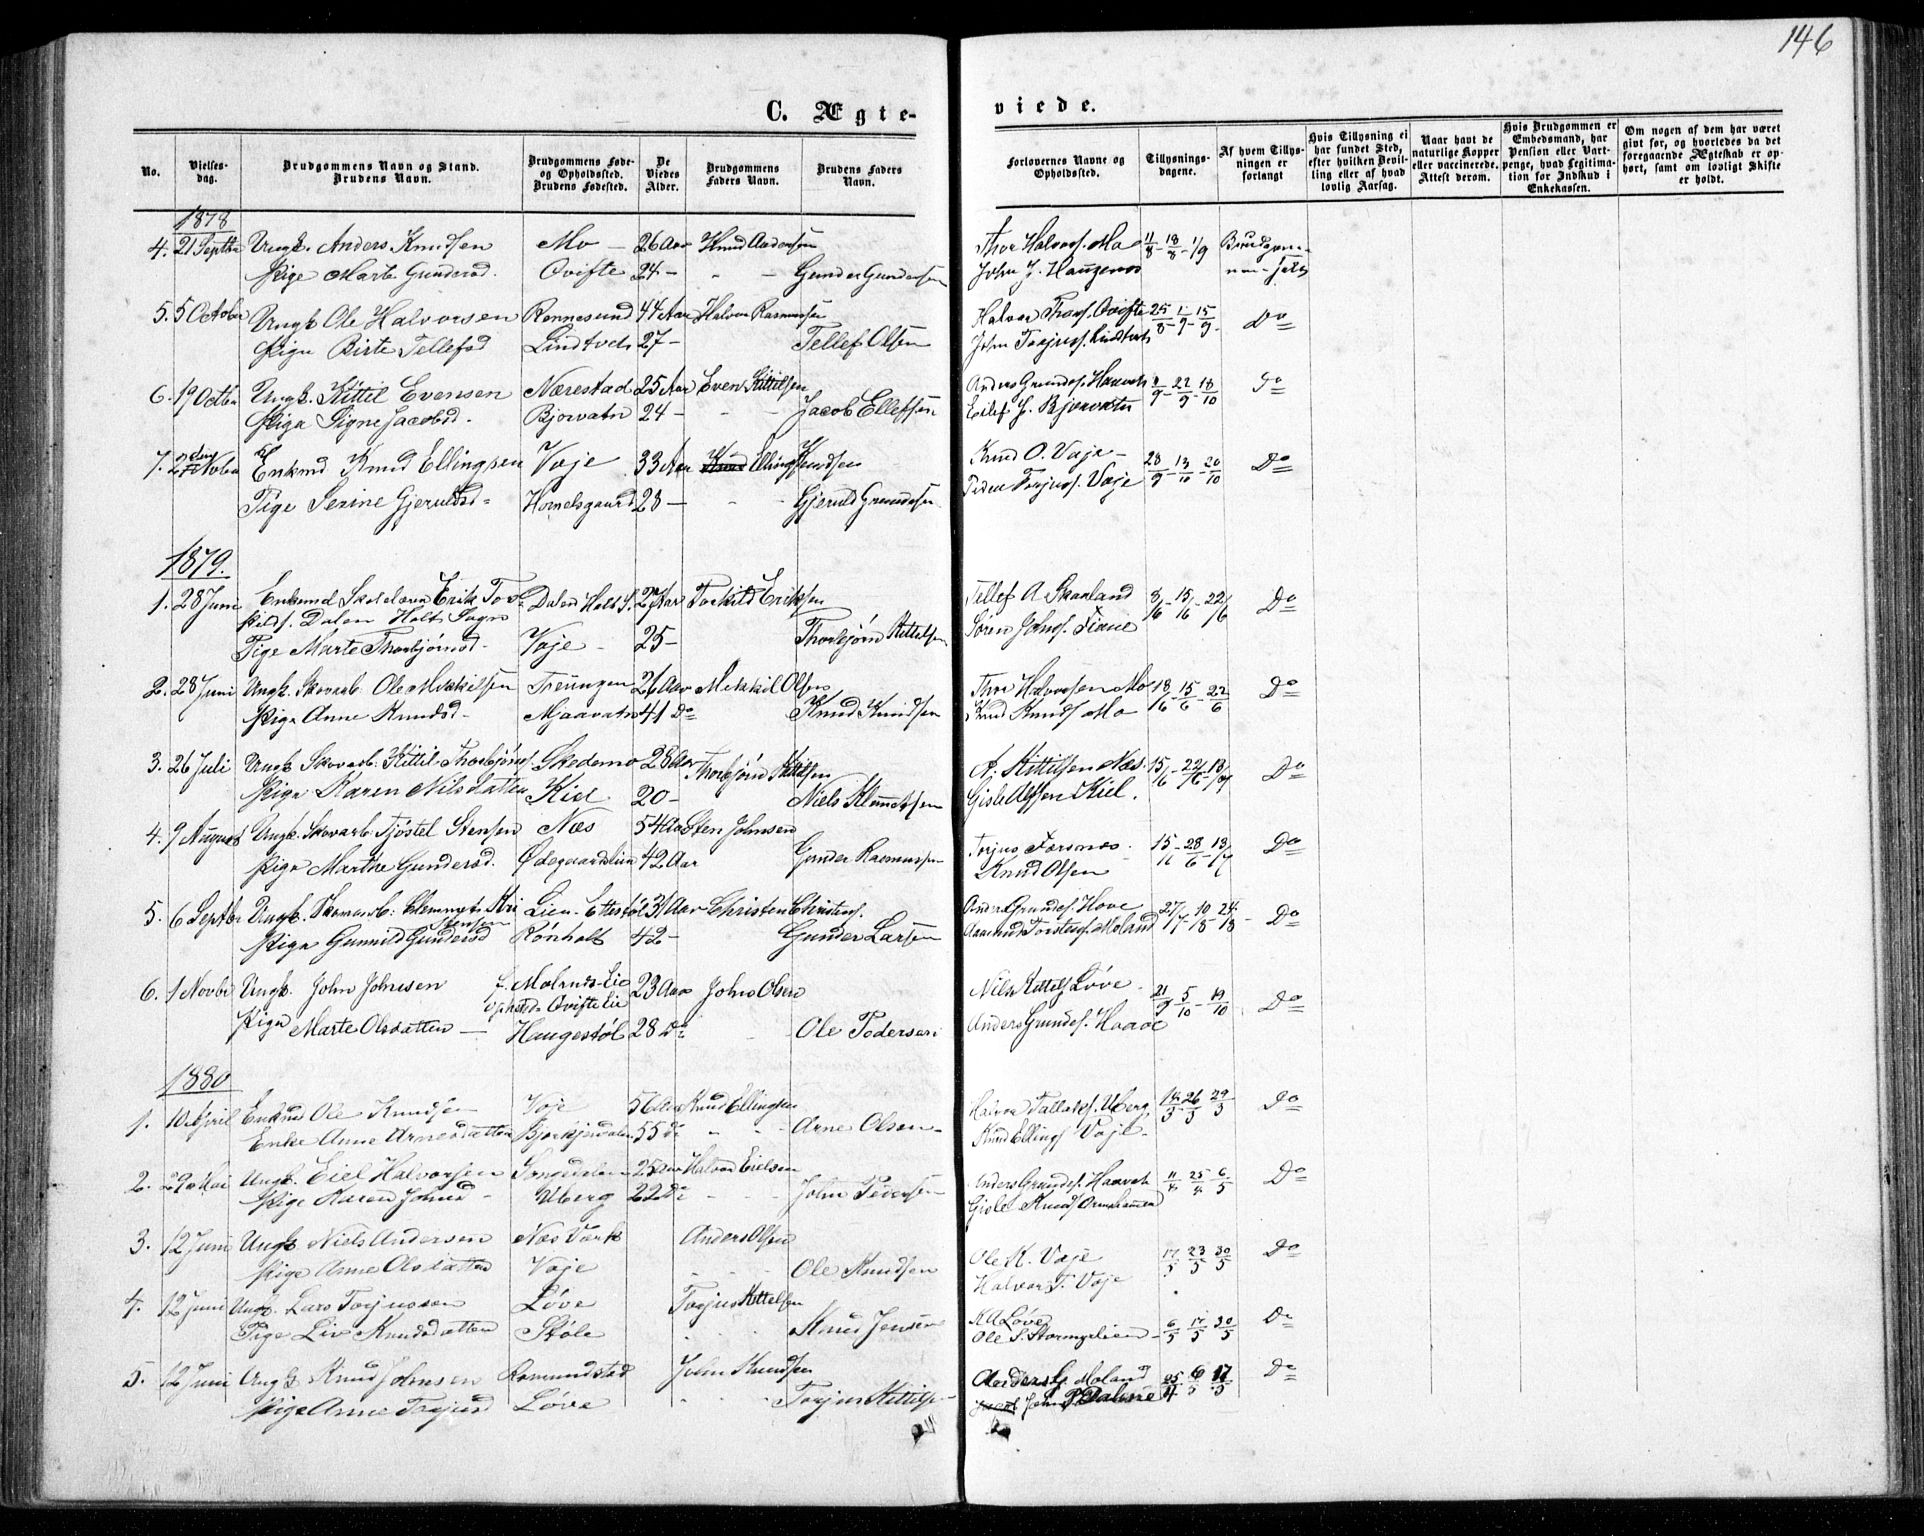 146
C. Ægte-
viede.
No.
Vielses-
dag.
Brudgommens Navn og Stand.
Brudens Navn.
Brudgommens Føde-
og Opholdssted.
Brudens Fødested.
De
Viedes
Alder.
Brudgommens
Faders Navn.
Brudens Faders
Navn.
Forlovernes Navne og
Opholdssted.
Tillysnings-
dagene.
Af hvem Tillys-
ningen er
forlangt
Hvis Tillysning ei
har fundet Sted,
efter hvilken Bevil-
ling eller af hvad
lovlig Aarsag.
Naar havt de
naturlige Kopper
eller vaccinerede.
Attest derom.
Hvis Brudgommen er
Embedsmand, har
Pension eller Vart-
penge, hvad Legitima-
tion for Indskud i
Enkekassen.
Om nogen af dem har været
givt før, og hvorledes da det
foregaaende Ægteskab er op-
hørt, samt om lovligt Skifte
er holdt.
1878
4. 21 Septbr Ungk. Anders Knudsen Mo 26 Aar Knud Andersen Thor Halvors. Mo 11/8 - 18/8 - 1/9
Pige Marte Gundersd. Ovifte 24 - Gunder Gundersen John J. Haugenes
5. 5 October Ungk Ole Halvorsen Rønnesund 44 Aar Halvor Rasmussen Halvor Thors. Ovifte 25/8 - 1/9 - 15/9 Do
Pige Birte Tellefsd Lindtveit 27 - Tellef Olsen John Torjuss. Lindtveit
6. 19 Octbr Ungk. Kittil Evensen Nærestad 25 Aar Even Kittilsen Anders Grundes. Haaveh 22/9 - 18/10 Do
Pige Signe Jacobsd. Bjorvatn 24 - Jacob Ellefsen Eilef J. Bjorvatn
7. 2den Novbr Enkmd Knud Ellingsen Voje 33 Aar Elling Knudsen Knud O. Voje 28/9 - 13/10 - 20/10 Do
Pige Serine Gjeruldsd - Homelsgaard 28 - Gjeruld Grundesen Torjuss. Voje
1879.
1. 28 Juni Enkemd Erik Tor- Dalen Holt S. 27 Aar Torkild Eriksen Tellef A. Skaaland 8/6 - 15/6 - 22/6 Do
kilds. Dalen Holts Sogn
Pige Marte Thorbjørnsd. Voje 25 - Thorbjørn Kittelsen Søren Johns. Fiane
2. 28 Juni Ungk. Skovarb. Ole Mikkilsen Treungen 26 Aar Mikkil Olsen Thor Halvorsen Mo 18/6 - 15/6 - 22/6 Do
Pige Anne Knudsd. Mjaavatn 41 Do Knud Knudsen Knud Knuds. Mo
3. 26 Juli Ungk Skovarb. Kittil Thorbjørns. Skedemo 28 Aar Thorbjørn Kittilsen A. Kittilsen Næs 15/6 - 22/6 - 13/7 Do
Pige Karen Nilsdatter Kiel 20 - Niels Klemetsen Gisle Kiel.
4. 9 August Ungk. Skovarb. Tjøstel Stensen Næs 54 Aar Sten Johnsen Torjus 15 - 28/6 - 13/7 Do
Pige Marthe Gundersd. Ødegaardslien 42 Aar Gunder Rasmussen Knud Olsen
5. 6 Septbr Ungk. Skomarb: Klemmet Kri Lien - 31 Aar Christen Christens. Anders Grundes. Hove 27/7 - 10/8 - 24/8 - Do
stensen
Pige Gunnild Gundersd Rønholt 42 - Gunder Larsen Aamund Torstens. Moland
6. 1 Novbr Ungk. John Johnsen f. Molands-Lie 23 Aar John Olsen Nils Kittels Løve 21/9 - 5/10 - 19/10 Do
opholdsted Ovifte Lie
Pige Marte Olsdatter Haugestøl 28 Do Ole Pedersen Anders Grundes. Haave
1880
1. 10 April Enkmd Ole Knudsen Voje 56 Aar Knud Ellingsen Halvor Tallaks. Uberg 14/3 - 26/3 29/3 Do
Enke Anne Arnesdatter 55 Do Arne Olsen Knud Ellings Voje
2. 29 Mai Ungk. Eiel Halvorsen Songedalen 25 Aar Halvor Eielsen Anders Grundes. Haaveh 11/4 25/4 6/5 Do
Pige Karen Johnsd - Uberg 22 Do John Pedersen Gisle Knuds
3. 12 Juni Ungk Niels Andersen Næs Værk Anders Olsen Ole K. Voje 17/5 23/5 30/5 Do
Pige Anne Olsdatter Voje Ole Knudsen Halvor T. Voje
4. 12 Juni Ungk. Lars Torjussen Løve Torjus Kittelsen K A Løve 6/5 17/5 30/5 Do
Pige Liv Knudsdatter Støle Knud Jensen Ole S. Stormyrlien
5. 12 Juni Ungk Knud Johnsen Romundstad John Knudsen Anders G. Moland 25/4 6/5 17/5 Do
Pige Anne Torjusd Løve Torjus Kittils John P Dalene